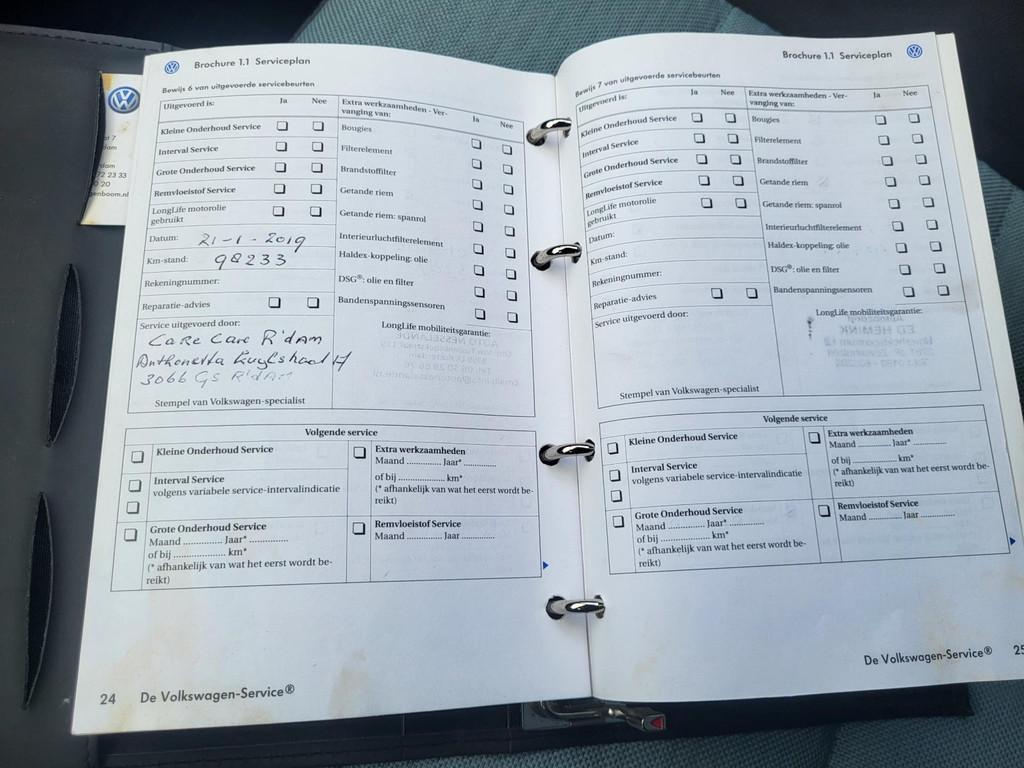 Brochure 1.1 Serviceplan
Bewijs 6 van uitgevoerde servicebeurten
Uitgevoerd is: Ja Nee
Kleine Onderhoud Service
Interval Service
Grote Onderhoud Service
Remvloeistof Service
LongLife motorolie
gebruikt
Datum: 21-1-2019
Km-stand: 98233
Rekeningnummer:
Reparatie-advies
Service uitgevoerd door:
CaRe Care R'dAM
3066 GS R'dAM
Stempel van Volkswagen-specialist
Extra werkzaamheden - Ver-
vanging van: Ja Nee
Bougies
Filterelement
Brandstoffilter
Getande riem
Getande riem: spanrol
Interieurluchtfilterelement
Haldex-koppeling: olie
DSG®: olie en filter
Bandenspanningssensoren
LongLife mobiliteitsgarantie:
Volgende service
Kleine Onderhoud Service
Interval Service
volgens variabele service-intervalindicatie
Grote Onderhoud Service
Maand ............ Jaar* ............
of bij ................ km*
(* afhankelijk van wat het eerst wordt be-
reikt)
Extra werkzaamheden
Maand ............ Jaar* ............
of bij ................ km*
(* afhankelijk van wat het eerst wordt be-
reikt)
Remvloeistof Service
Maand ............ Jaar ............
24 De Volkswagen-Service®
Brochure 1.1 Serviceplan
Bewijs 7 van uitgevoerde servicebeurten
Uitgevoerd is: Ja Nee
Kleine Onderhoud Service
Interval Service
Grote Onderhoud Service
Remvloeistof Service
LongLife motorolie
gebruikt
Datum:
Km-stand:
Rekeningnummer:
Reparatie-advies
Service uitgevoerd door:
Stempel van Volkswagen-specialist
Extra werkzaamheden - Ver-
vanging van: Ja Nee
Bougies
Filterelement
Brandstoffilter
Getande riem
Getande riem: spanrol
Interieurluchtfilterelement
Haldex-koppeling: olie
DSG®: olie en filter
Bandenspanningssensoren
LongLife mobiliteitsgarantie:
Volgende service
Kleine Onderhoud Service
Interval Service
volgens variabele service-intervalindicatie
Grote Onderhoud Service
Maand ............ Jaar* ............
of bij ................ km*
(* afhankelijk van wat het eerst wordt be-
reikt)
Extra werkzaamheden
Maand ............ Jaar* ............
of bij ................ km*
(* afhankelijk van wat het eerst wordt be-
reikt)
Remvloeistof Service
Maand ............ Jaar ............
De Volkswagen-Service® 25